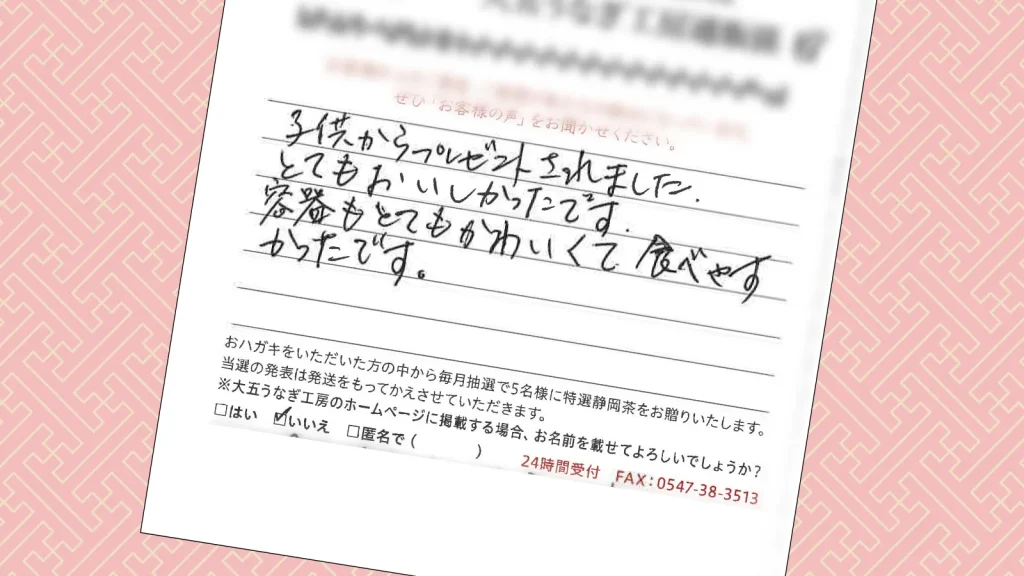 大五うなぎ工房通販係 行
ぜひ「お客様の声」をお聞かせください。
子供からプレゼントされました.
とてもおいしかったです.
容器もとてもかわいくて 食べやす
かったです。
おハガキをいただいた方の中から毎月抽選で5名様に特選静岡茶をお贈りいたします。
当選の発表は発送をもってかえさせていただきます。
※大五うなぎ工房のホームページに掲載する場合、お名前を載せてよろしいでしょうか?
□はい ☑いいえ □匿名で( )
24時間受付 FAX:0547-38-3513